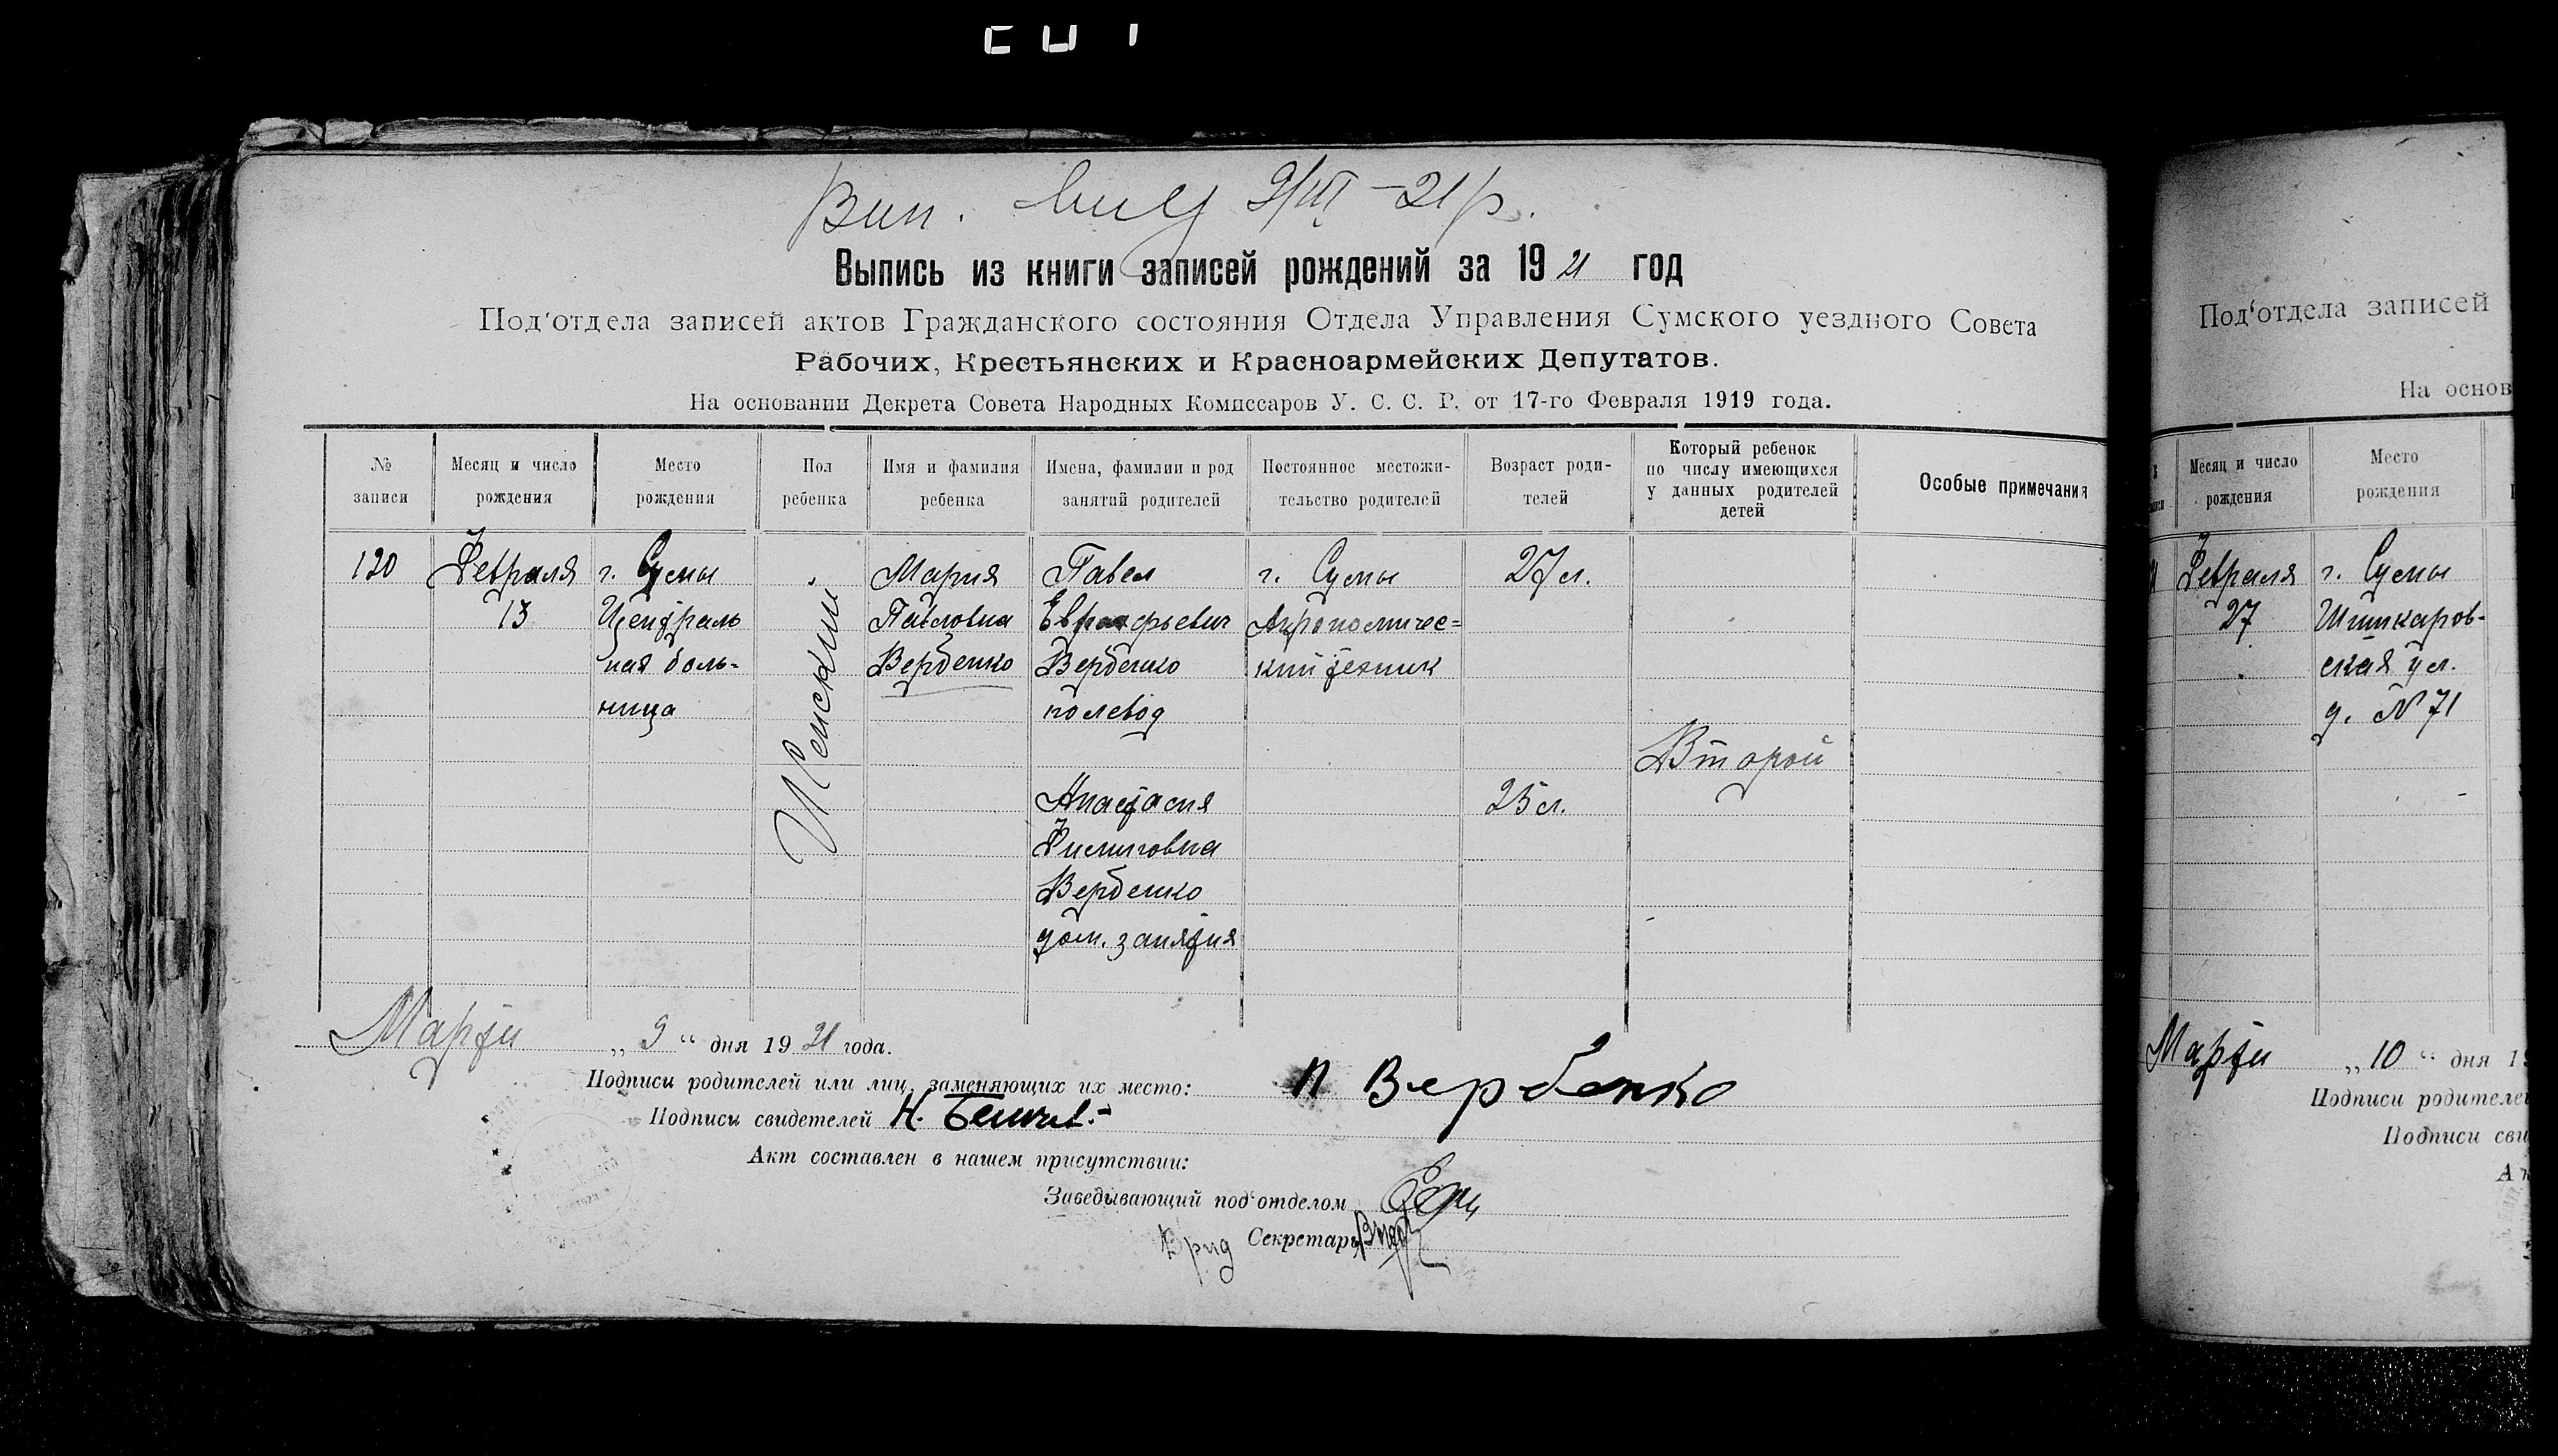 Вип. вид 9/III-21 р.
Выпись из книги записей рождений за 1921 год
Под'отдела записей актов Гражданского состояния Отдела Управления Сумского уездного Совета
Рабочих, Крестьянских и Красноармейских Депутатов.
На основании Декрета Совета Народных Комиссаров У. С. С. Р. от 17-го Февраля 1919 года.
№ записи
Месяц и число рождения
Место рождения
Пол ребенка
Имя и фамилия ребенка
Имена, фамилии и род занятий родителей
Постоянное местожи-
тельство родителей
Возраст роди-
телей
Который ребенок
по числу имеющихся
у данных родителей
детей
Особые примечания
120
Февраля
13
г. Сумы
Централь
ная боль-
ница
Женский
Мария
Павловна
Вербенко
Павел
Евграфьевич
Вербенко
полевод
Анастасия
Филиповна
Вербенко
дом. занятия
г. Сумы
Агрономичес=
кий техник
27 л.
25 л.
Второй
Марта „ 9 “ дня 1921 года.
Подписи родителей или лиц, заменяющих их место: П Вербенко
Подписи свидетелей Н.
Акт составлен в нашем присутствии:
Заведывающий под'отделом
Врид Секретарь
Под'отдела записей
На основ
Месяц и число
рождения
Место
рождения
Февраля
27
г. Сумы
Шишкаров-
ская ул.
д. № 71
Марта „ 10 “ дня 19
Подписи родителе
Подписи сви
Ак